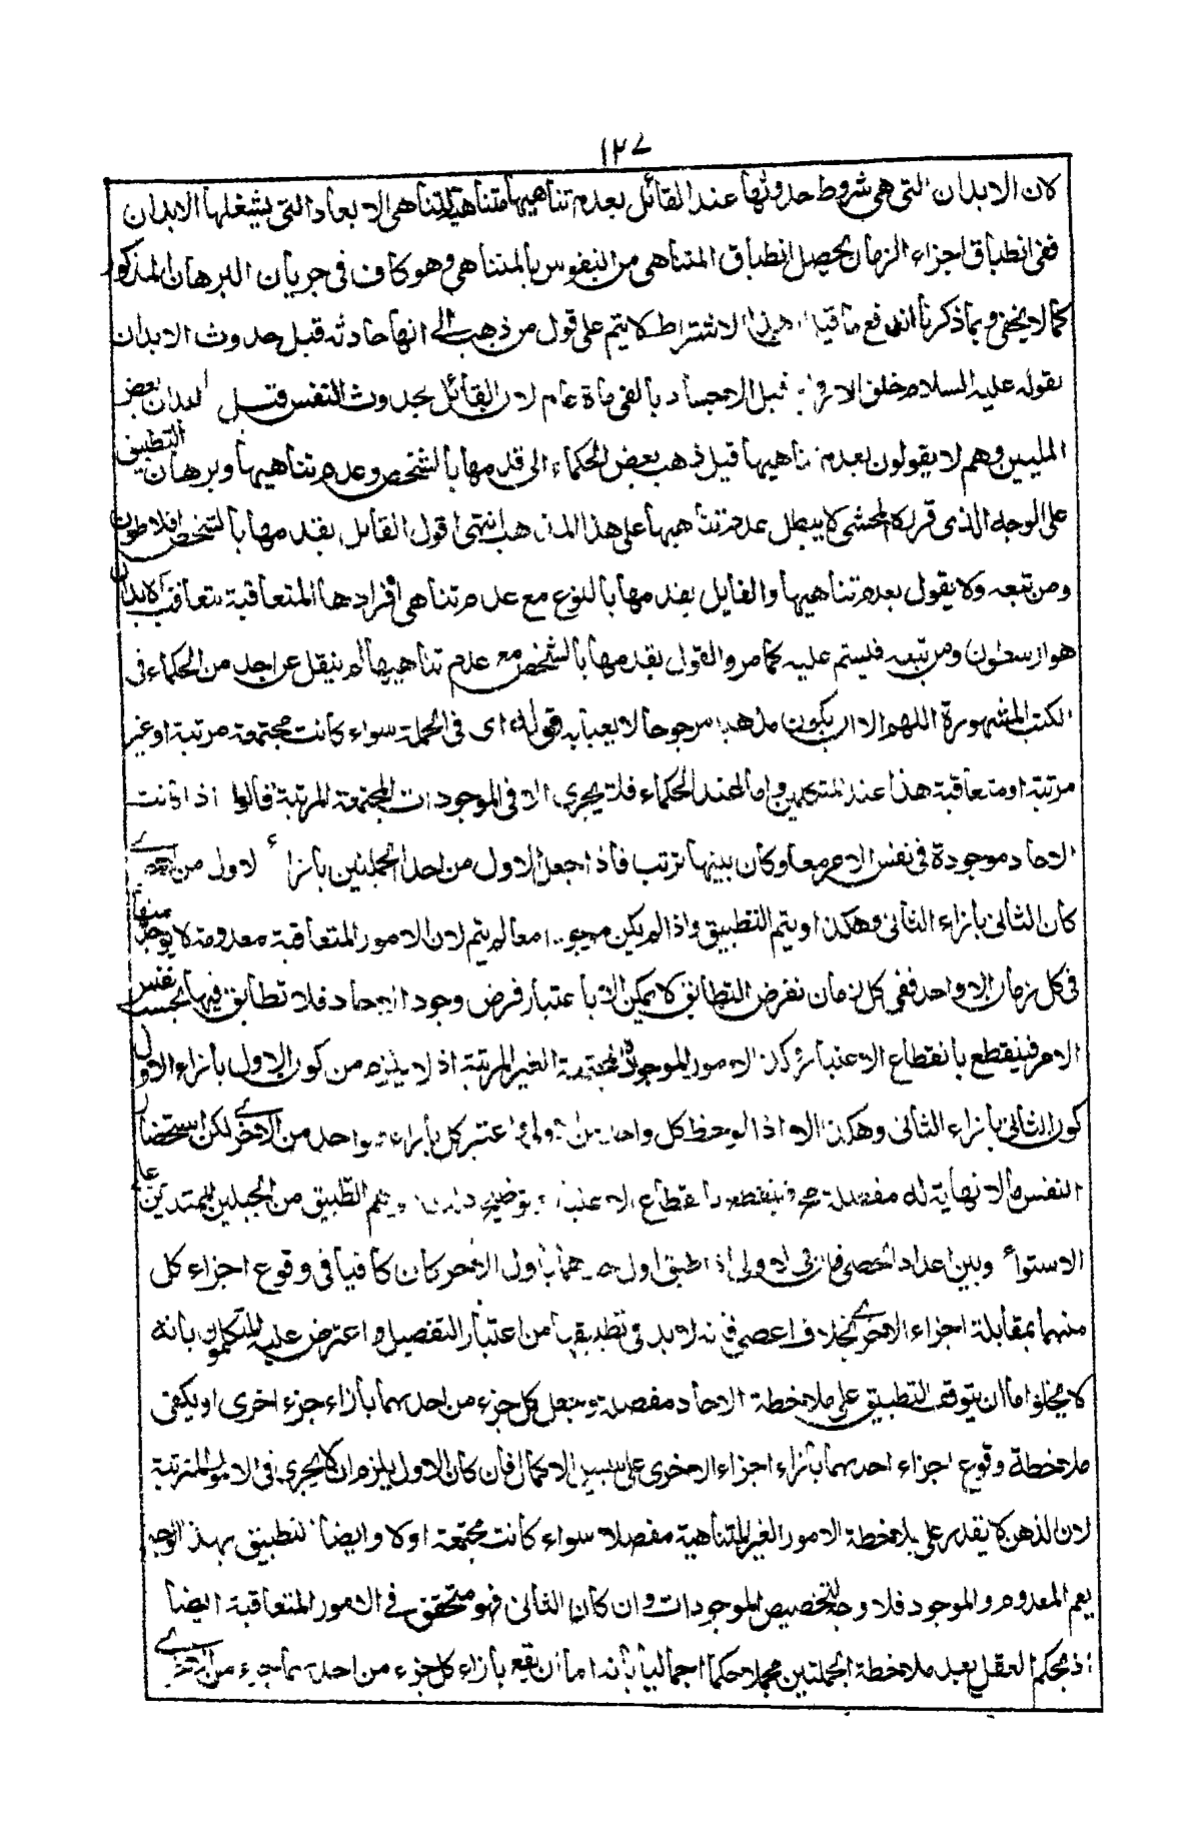 ١٢٧
كان الابدان التى هى شروط حدوثها عند القائل بعدم تناهيها متناهية لتناهى الابعاد التى يشغلها الابدان
ففى انطباق اجزاء الزمان يحصل انطباق المتناهى من النفوس بالمتناهى وهو كاف فى جريان البرهان المذكور
كما لا يخفى وبما ذكرنا اندفع ما قيل هذا الاشتراط لا يتم على قول من ذهب الى انها حادثة قبل حدوث الابدان
بقوله عليه السلام خلق الارواح قبل الاجساد بالفى عام لان القائل بحدوث النفس قبل البدن بعض
المليين وهم لا يقولون بعدم تناهيها قيل ذهب بعض الحكماء الى قدمها بالشخص وعدم تناهيها وبرهان التطبيق
على الوجه الذى قرره المحشى لا يبطل عدم تناهيها على هذا المذهب انتهى اقول القائل بقدمها بالشخص افلاطون
ومن تبعه ولا يقول بعدم تناهيها والقايل بقدمها بالنوع مع عدم تناهى افرادها المتعاقبة بتعاقب الابدان
هو ارسطون ومن تبعه فليستم عليه كما مر والقول بقدمها بالشخص مع عدم تناهيها لم ينقل عن احد من الحكماء فى
الكتب المشهورة اللهم الا ان يكون مذهبا مرجوحا لا يعبأ به قوله اى فى الجملة سواء كانت مجتمعة مرتبة او غير
مرتبة او متعاقبة هذا عند المتكلمين واما عند الحكماء فلا يجرى الا فى الموجودات المجتمعة المرتبة قالوا اذا كانت
الاحاد موجودة فى نفس الامر معا وكان بينها ترتب فاذا جعل الاول من احد الجملتين بازاء الاول من الاخرى
كان الثانى بازاء الثانى وهكذا ويتم التطبيق واذا لم يكن موجودا معا لم يتم لان الامور المتعاقبة معدومة لا يوجد منها
فى كل زمان الا واحد ففى كل زمان نفرض التطابق لا يمكن الا باعتبار فرض وجود الاحاد فلا تطابق فيها بحسب نفس
الامر فينقطع بانقطاع الاعتبار وكذا الامور الموجودة المجتمعة الغير المرتبة اذ لا يلزم من كون الاول بازاء الاول
كون الثانى بازاء الثانى وهكذا الا اذا لوحظ كل واحد من الاولى واعتبر كل بازاء واحد من الاخرى لكن استحضار
النفس ما لا نهاية له مفصلة مح فينقطع بانقطاع الاعتبار وتوضيح ذلك بتوهم التطبيق من الحبلين الممتدين على
الاستواء وبين اعداد الحصى فان فى الاولى اذا طبق اول احدهما باول الاخر كان كافيا فى وقوع اجزاء كل
منهما بمقابلة اجزاء الاخرى بخلاف الحصى فانه لا بد فى تطبيقها من اعتبار التفصيل واعترض عليه المتكلمون بانه
لا يخلو اما ان يتوقف التطبيق على ملاحظة الاحاد مفصلة وجعل كل جزء من احدهما بازاء جزء اخرى او يكفى
ملاحظة وقوع اجزاء احدهما بازاء اجزاء الاخرى على سبيل الاكمال فان كان الاول يلزم ان لا يجرى فى الامور المترتبة
لان الذهن لا يقدر على ملاحظة الامور الغير المتناهية مفصلا سواء كانت مجتمعة اولا وايضا التطبيق بهذا الوجه
يعم المعدوم والموجود فلا وجه لتخصيص الموجودات وان كان الثانى فهو متحقق فى الامور المتعاقبة ايضا
اذ يحكم العقل بعد ملاحظة الجملتين مجملا حكما اجماليا بانه اما ان يقع بازاء كل جزء من احدهما جزء من الاخرى